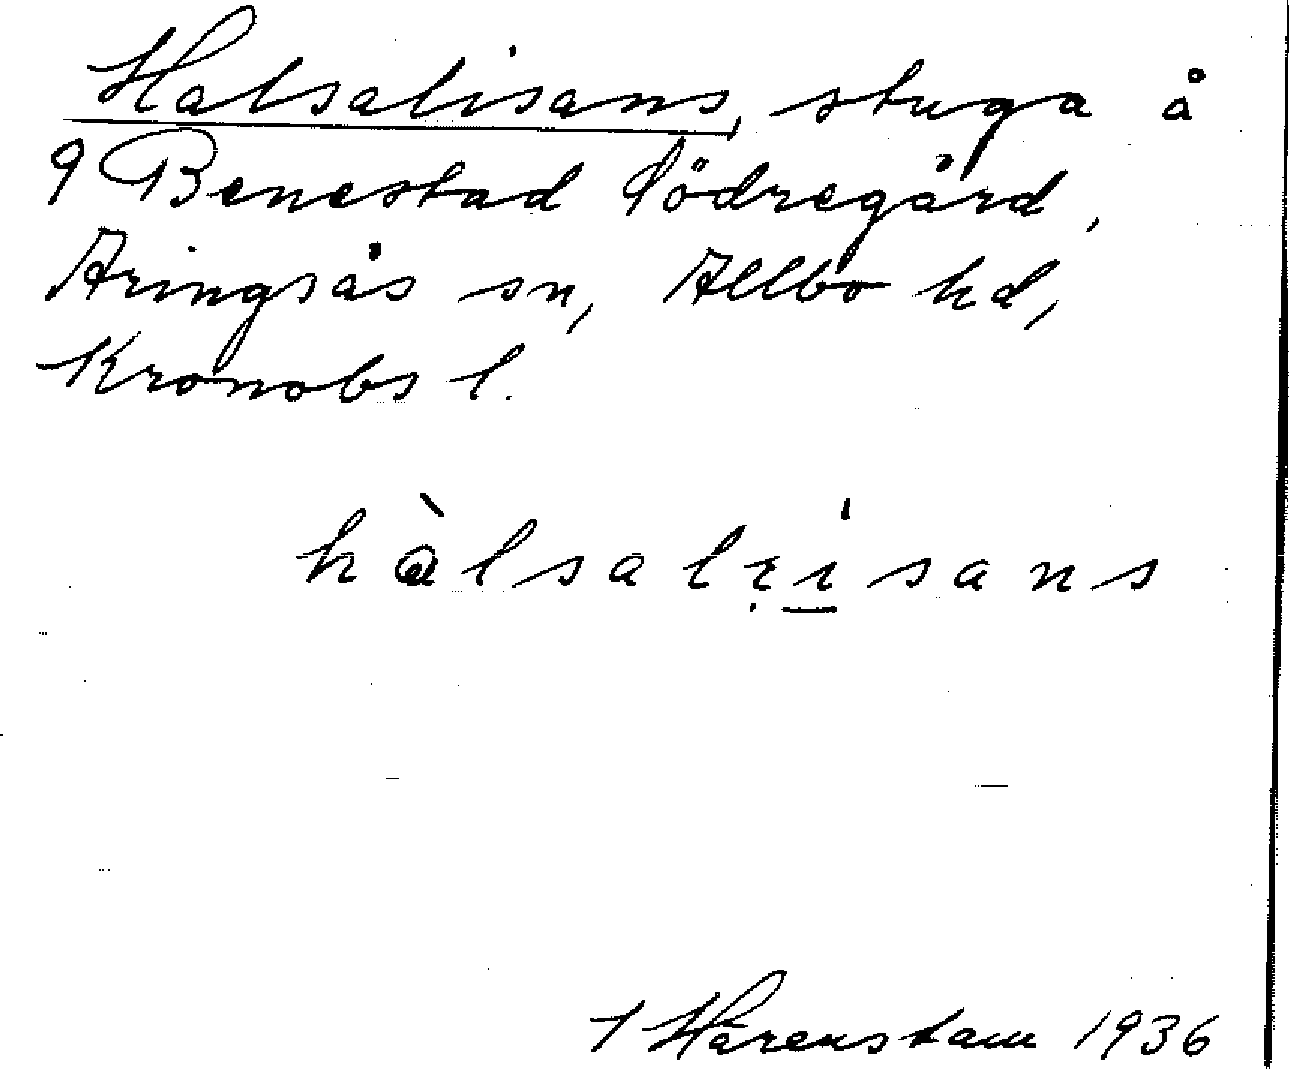 Halsalisans, stuga å
9 Benestad Södregård,
Aringsås sn, Allbo hd,
Kronobs l.
hàlsalẹi̲sans
Härenstam 1936